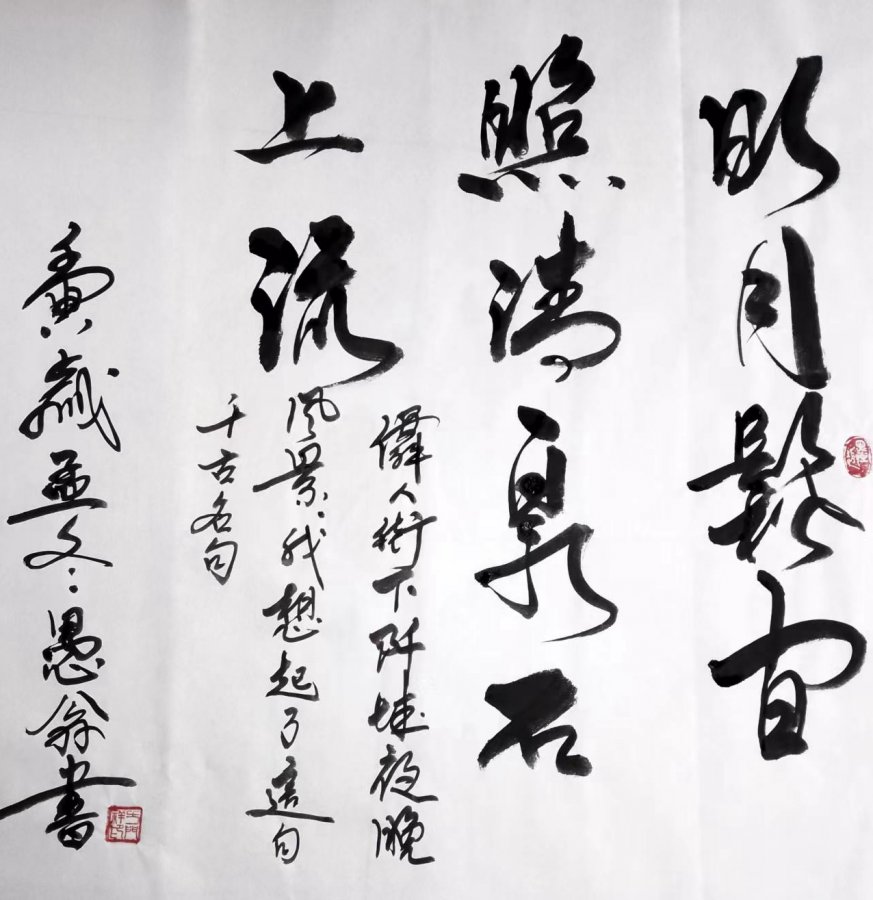 明月鬆間
照清泉石
上流
人街下阡城夜晚
風景、我想起了這句
千古名句
壬寅歲孟冬愚翁書